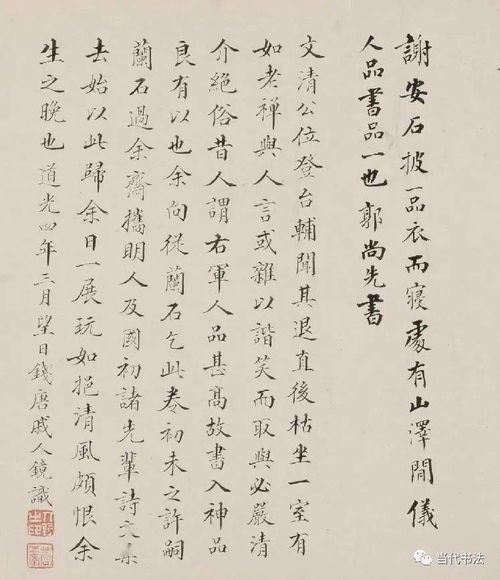 謝安石披一品衣而寢處有山澤閒儀
人品書品一也郭尚先書
文清公位登台輔聞其退直後枯坐一室有
如老禪與人言或雜以諧笑而取與必嚴清
介絕俗昔人謂右軍人品甚高故書入神品
良有以也余向從蘭石乞此卷初未之許嗣
蘭石過余齋攜明人及國初諸先輩詩文集
去始以此歸余日一展玩如挹清風頗恨余
生之晚也道光四年三月望日錢唐戚人鏡識
当代书法